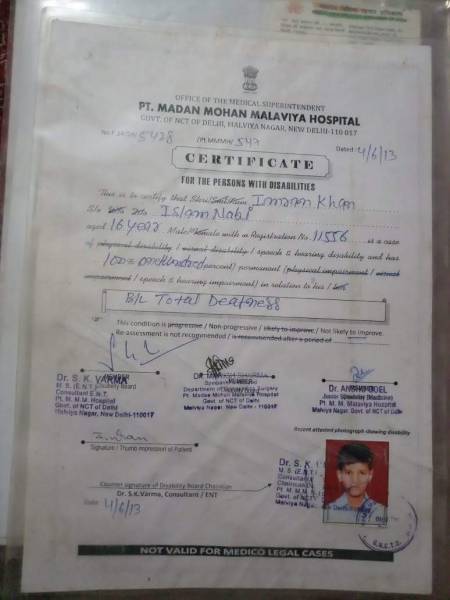 OFFICE OF THE MEDICAL SUPERINTENDENT
PT. MADAN MOHAN MALAVIYA HOSPITAL
GOVT. OF NCT OF DELHI, MALVIYA NAGAR, NEW DELHI-110 017
5428 547 Dated 4/6/13
CERTIFICATE
FOR THE PERSONS WITH DISABILITIES
This is to certify that Shri/Smt/Kum Imran Khan
S/o Islam Nabi
aged 16 year Male/Female with a Registration No. 11556 is a case
of physical disability / visual disability / speech & hearing disability and has
100% percent) permanent (physical impairment / visual
impairment / speech & hearing impairment) in relation to his / her
B/L Total Deafness
This condition is progressive / Non-progressive / likely to improve / Not likely to improve.
Re-assessment is not recommended / is recommended after a period of
Dr. S. K. VARMA
M. S. (E.N.T.)
Consultant E.N.T.
Pt. M. M. M. Hospital
Govt. of NCT of Delhi
Malviya Nagar, New Delhi-110017
MEMBER
Department of Surgery
Pt. Madan Mohan Malaviya Hospital
Govt. of NCT of Delhi
Malviya Nagar, New Delhi
Dr. ANSHU GOEL
Pt. M. M. Malaviya Hospital
Govt. of NCT of Delhi
Malviya Nagar, New Delhi
Recent attested photograph showing disability
Imran
Signature / Thumb impression of Patient
Dr. S. K.
M. S. (E.N.T.)
Govt. of NCT
Malviya Nagar
Counter signature of Disability Board Chairman
Dr. S.K.Varma, Consultant / ENT
Date 4/6/13
NOT VALID FOR MEDICO LEGAL CASES